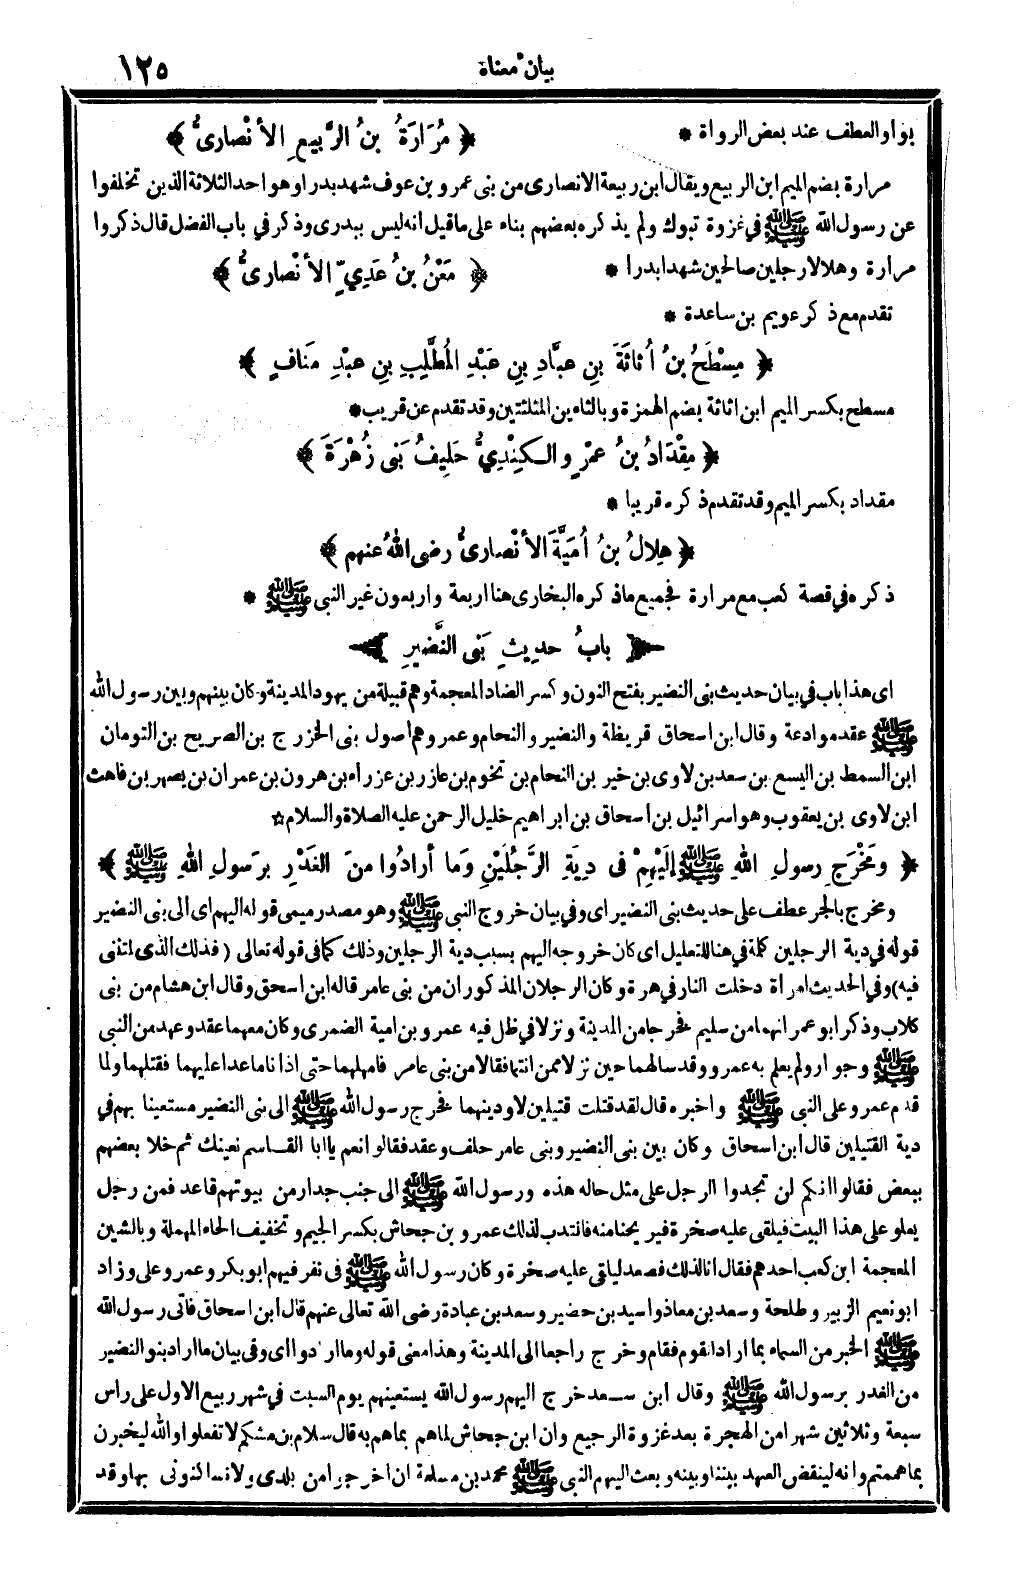 بيان معناة
١٢٥
بواو العطف عند بعض الرواة * ﴿ مُرَارَةُ بنُ الرَّبيعِ الأنْصارىُّ ﴾
مرارة بضم الميم ابن الربيع ويقال ابن ربيعة الانصارى من بنى عمرو بن عوف شهد بدرا وهو احد الثلاثة الذين تخلفوا
عن رسول الله ﷺ في غزوة تبوك ولم يذكره بعضهم بناء على ماقيل انه ليس ببدرى وذكر في باب الفضل قال ذكروا
مرارة وهلالا رجلين صالحين شهدا بدرا * ﴿ مَعْنُ بنُ عَدِيٍّ الأنْصارىُّ ﴾
تقدم مع ذكر عويم بن ساعدة *
﴿ مِسْطَحُ بنُ أُثاثَةَ بنِ عبَّادِ بنِ عَبْدِ المُطَّلِبِ بنِ عبْدِ مَنافٍ ﴾
مسطح بكسر الميم ابن اثاثة بضم الهمزة وبالثاءين المثلثتين وقد تقدم عن قريب *
﴿ مِقْدَادُ بنُ عمْرٍو الكِنْدِيُّ حَلِيفُ بَنى زُهْرَةَ ﴾
مقداد بكسر الميم وقد تقدم ذكره قريبا *
﴿ هِلالُ بنُ أُمَيَّةَ الأنْصارىُّ رضى اللهُ عنهم ﴾
ذكره في قصة كعب مع مرارة فجميع ماذكره البخارى هنا اربعة واربعون غير النبى ﷺ *
﴿ بابُ حديثِ بَنى النَّضيرِ ﴾
اى هذا باب في بيان حديث بنى النضير بفتح النون وكسر الضاد المعجمة وهم قبيلة من يهود المدينة وكان بينهم وبين رسول الله
ﷺ عقد موادعة وقال ابن اسحاق قريظة والنضير والنحام وعمرو هم اصول بنى الخزرج بن الصريح بن التومان
ابن السمط بن اليسع بن سعد بن لاوى بن خير بن النحام بن تخوم بن عازر بن عزراء بن هرون بن عمران بن يصهر بن فاهث
ابن لاوى بن يعقوب وهو اسرائيل بن اسحاق بن ابراهيم خليل الرحمن عليه الصلاة والسلام ☆
﴿ ومَخْرَجِ رسولِ اللهِ ﷺ إلَيْهِمْ فى دِيَةِ الرَّجُلَيْنِ وَما أرادُوا منَ الغَدْرِ برَسولِ اللهِ ﷺ ﴾
ومخرج بالجر عطف على حديث بنى النضير اى وفي بيان خروج النبى ﷺ وهو مصدر ميمى قوله اليهم اى الى بنى النضير
قوله في دية الرجلين كلمة في هنا للتعليل اى كان خروجه اليهم بسبب دية الرجلين وذلك كما فى قوله تعالى ( فذلك الذى لمتننى
فيه) وفي الحديث امرأة دخلت النار في هرة وكان الرجلان المذكوران من بنى عامر قاله ابن اسحق وقال ابن هشام من بنى
كلاب وذكر ابو عمر انهما من سليم فخرجا من المدينة ونزلا في ظل فيه عمرو بن امية الضمرى وكان معهما عقد وعهد من النبى
ﷺ وجوار ولم يعلم به عمرو وقد سالهما حين نزلا ممن انتما فقالا من بنى عامر فامهلهما حتى اذا ناما عدا عليهما فقتلهما ولما
قدم عمرو على النبى ﷺ واخبره قال لقد قتلت قتيلين لاودينهما فخرج رسول الله ﷺ الى بنى النضير مستعينا بهم في
دية القتيلين قال ابن اسحاق وكان بين بنى النضير وبنى عامر حلف وعقد فقالوا نعم ياابا القاسم نعينك ثم خلا بعضهم
ببعض فقالوا انكم لن تجدوا الرجل على مثل حاله هذه ورسول الله ﷺ الى جنب جدار من بيوتهم قاعد فمن رجل
يعلو على هذا البيت فيلقى عليه صخرة فيريحنا منه فانتدب لذلك عمرو بن جحاش بكسر الجيم وتخفيف الحاء المهملة وبالشين
المعجمة ابن كعب احدهم فقال انا لذلك فصعد ليلقى عليه صخرة وكان رسول الله ﷺ فى نفر فيهم ابو بكر وعمرو على وزاد
ابو نعيم الزبير وطلحة وسعد بن معاذ واسيد بن حضير وسعد بن عبادة رضى الله تعالى عنهم قال ابن اسحاق فاتى رسول الله
ﷺ الخبر من السماء بما اراد القوم فقام وخرج راجعا الى المدينة وهذا معنى قوله وما ارادوا اى وفى بيان ما اراد بنو النضير
من الغدر برسول الله ﷺ وقال ابن سعد خرج اليهم رسول الله يستعينهم يوم السبت في شهر ربيع الاول على رأس
سبعة وثلاثين شهرا من الهجرة بعد غزوة الرجيع وان ابن جحاش لما هم بما هم به قال سلام بن مشكم لا تفعلوا والله ليخبرن
بما هممتم وانه لينقض العهد بيننا وبينه وبعث اليهم النبى ﷺ محمد بن مسلمة ان اخرجوا من بلدى ولا تساكنونى بها وقد